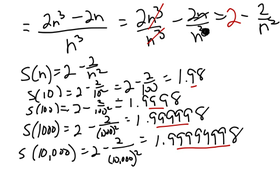 = (2n³ - 2n)/n³ = 2n³/n³ - 2n/n³ = 2 - 2/n²
S(n) = 2 - 2/n²
S(10) = 2 - 2/10² = 2 - 2/100 = 1.98
S(100) = 2 - 2/100² = 1.9998
S(1000) = 2 - 2/(1000)² = 1.999998
S(10,000) = 2 - 2/(10,000)² = 1.99999998